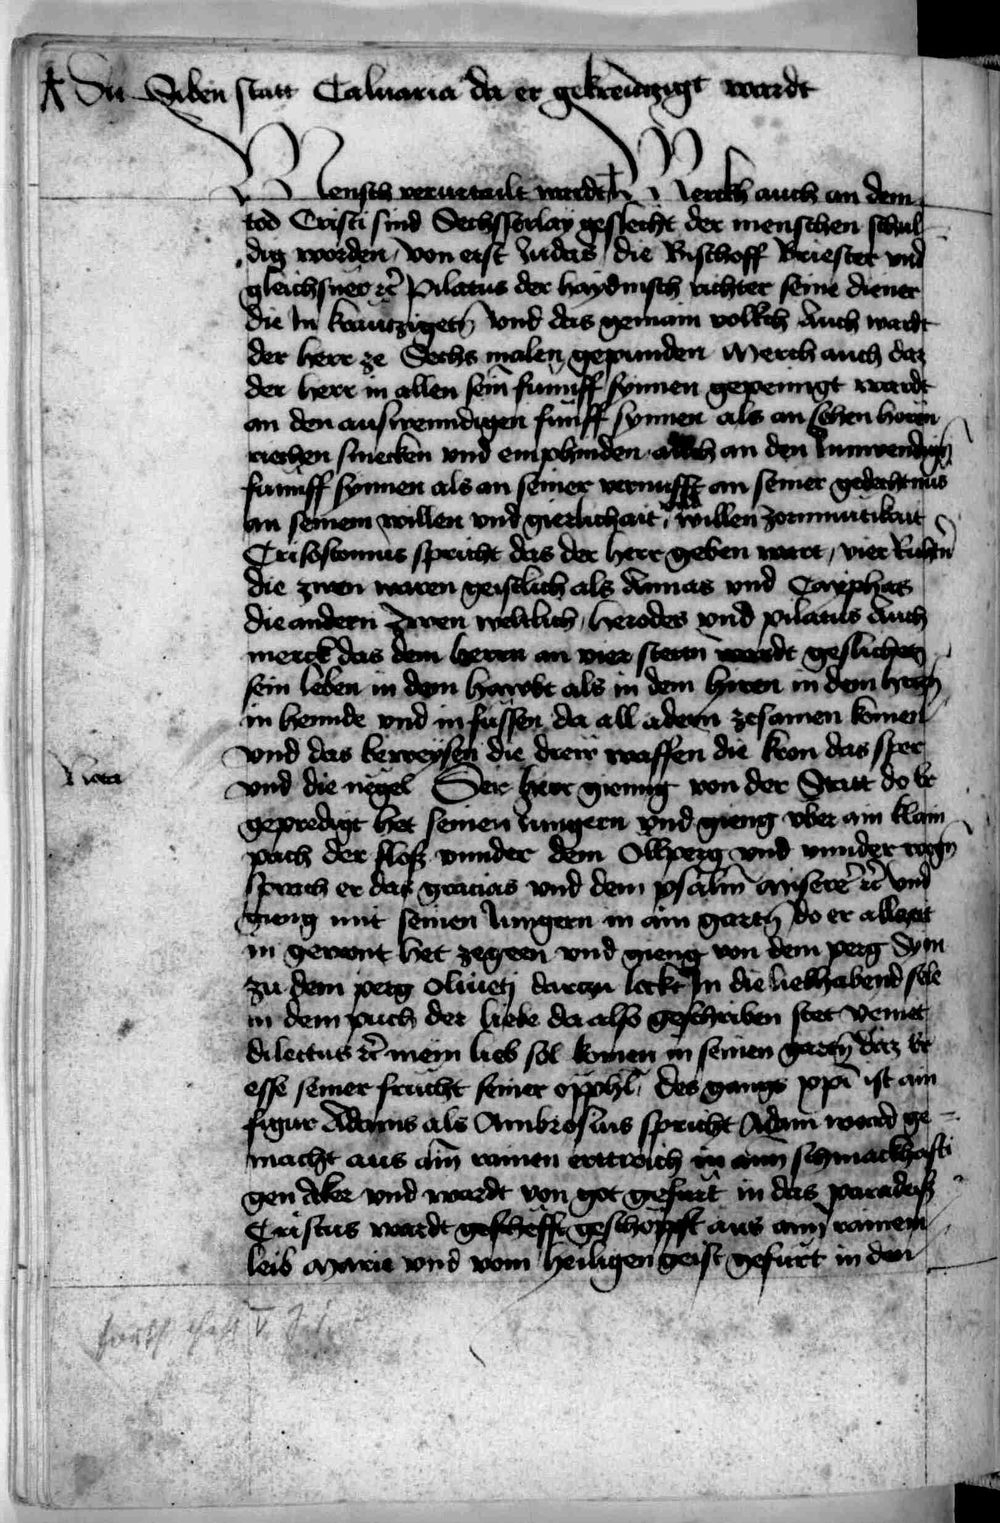 Die Siben statt Caluaria da er gekreutzigt wardt
Mensch verurtailt wardt Merckh auch an dem
tod Cristi sind Sechsserlay geslecht der menschen schul
dig worden von erst Judas die Bischoff Briester vnd
gleichsner etc̄ Pilatus der haydnisch richter seine diener
die In krautzigetn̄ Vnd das gemain vollkch Auch wardt
der herr ze Sechs malen gepunden Merch auch daz
der herr in allen sein̄ funnff synnen gepeinigt wardt
an den auswenndigen funff synnen als an sehen horen
riechen smecken vnd emphinden auch an den Innwendign̄
funnff synnen als an seiner vernufft an seiner gedechtnus
an seinem willen vnd gierlichait willen zornmutikait
Crisostomus spricht das der herr geben wart vier Richtn̄
die zwen waren geistlich als Annas vnd Cayphas
die andern Zwen weltlich herodes vnd pilatus Auch
merck das dem herrn an vier stetten wardt geslichen
sein leben in dem hawbt als in dem hiren in dem hertzn̄
in hennde vnd in fussen da all adern zesamen komen
vnd das beweysen die drew waffen die kron das sper
Nota
vnd die negel Der herr gienng von der Statt do er
gepredigt het seinen Jungern vnd gieng vber ain klain
pach der floss vnnder dem Ollperg vnd vnnder wegn̄
sprach er das gracias vnd dem psalm̄ Miserere etc̄ vnd
gieng mit seinen Jungern in ain gartn̄ do er allzeit
in gewont het zegeen vnd gieng von dem perg Syon
zu dem perg Oliueti darczu lockt In die liebhabend sele
in dem puch der liebe da also geschriben stet Veniat
dilectus etc̄ mein lieb sol komen in seinen gartn̄ daz er
esse seiner frucht seiner opphl des gangs xpi ist ain
figur Adams als Ambrosius spricht Adam ward ge
macht aus aim̄ rainen ertrreich in ainn schmackhafti
gen Aker vnd wardt von got gefurt in das paradeiss
Cristus wardt geschefft geschopfft aus ainn̄ rainem
leib Marie vnd vom heiligen geist gefurt in den